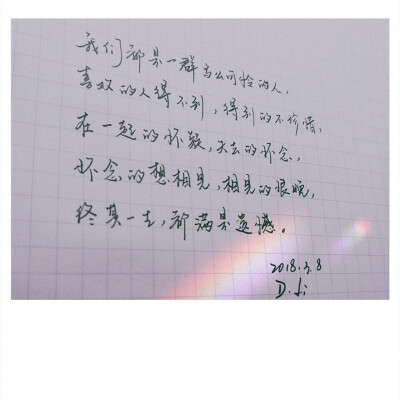 我们都是一群多么可怜的人，
喜欢的人得不到，得到的不珍惜，
在一起的怀疑，失去的怀念，
怀念的想相见，相见的恨晚，
终其一生，都满是遗憾。
2018.3.8
D.Li